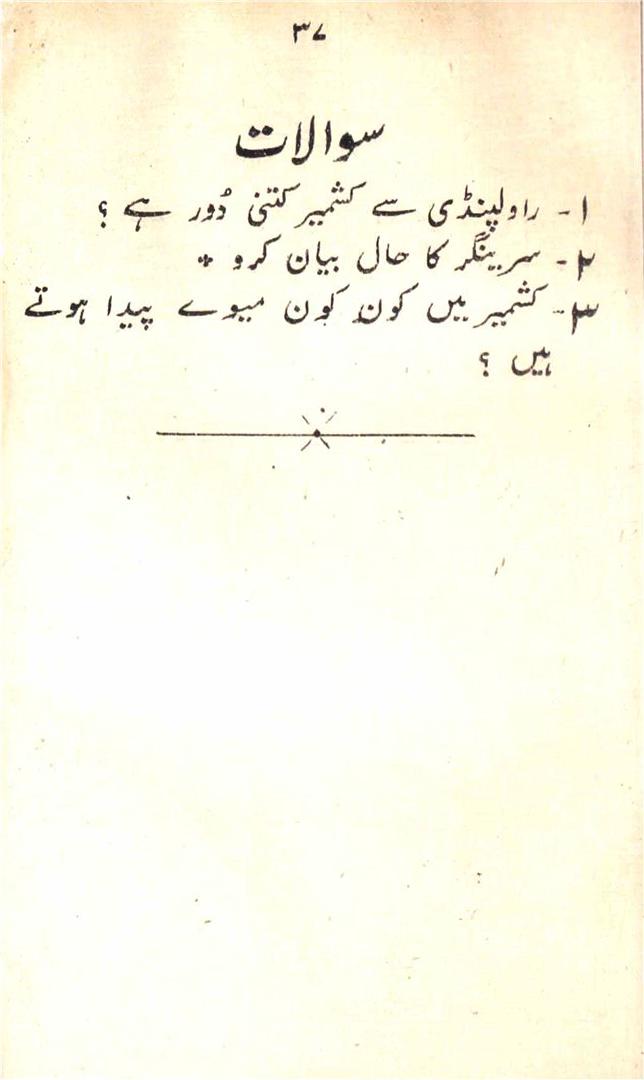 ۳۷
سوالات
۱- راولپنڈی سے کشمیر کتنی دُور ہے ؟
۲- سرینگر کا حال بیان کرو *
۳- کشمیر میں کون کون میوے پیدا ہوتے
ہیں ؟